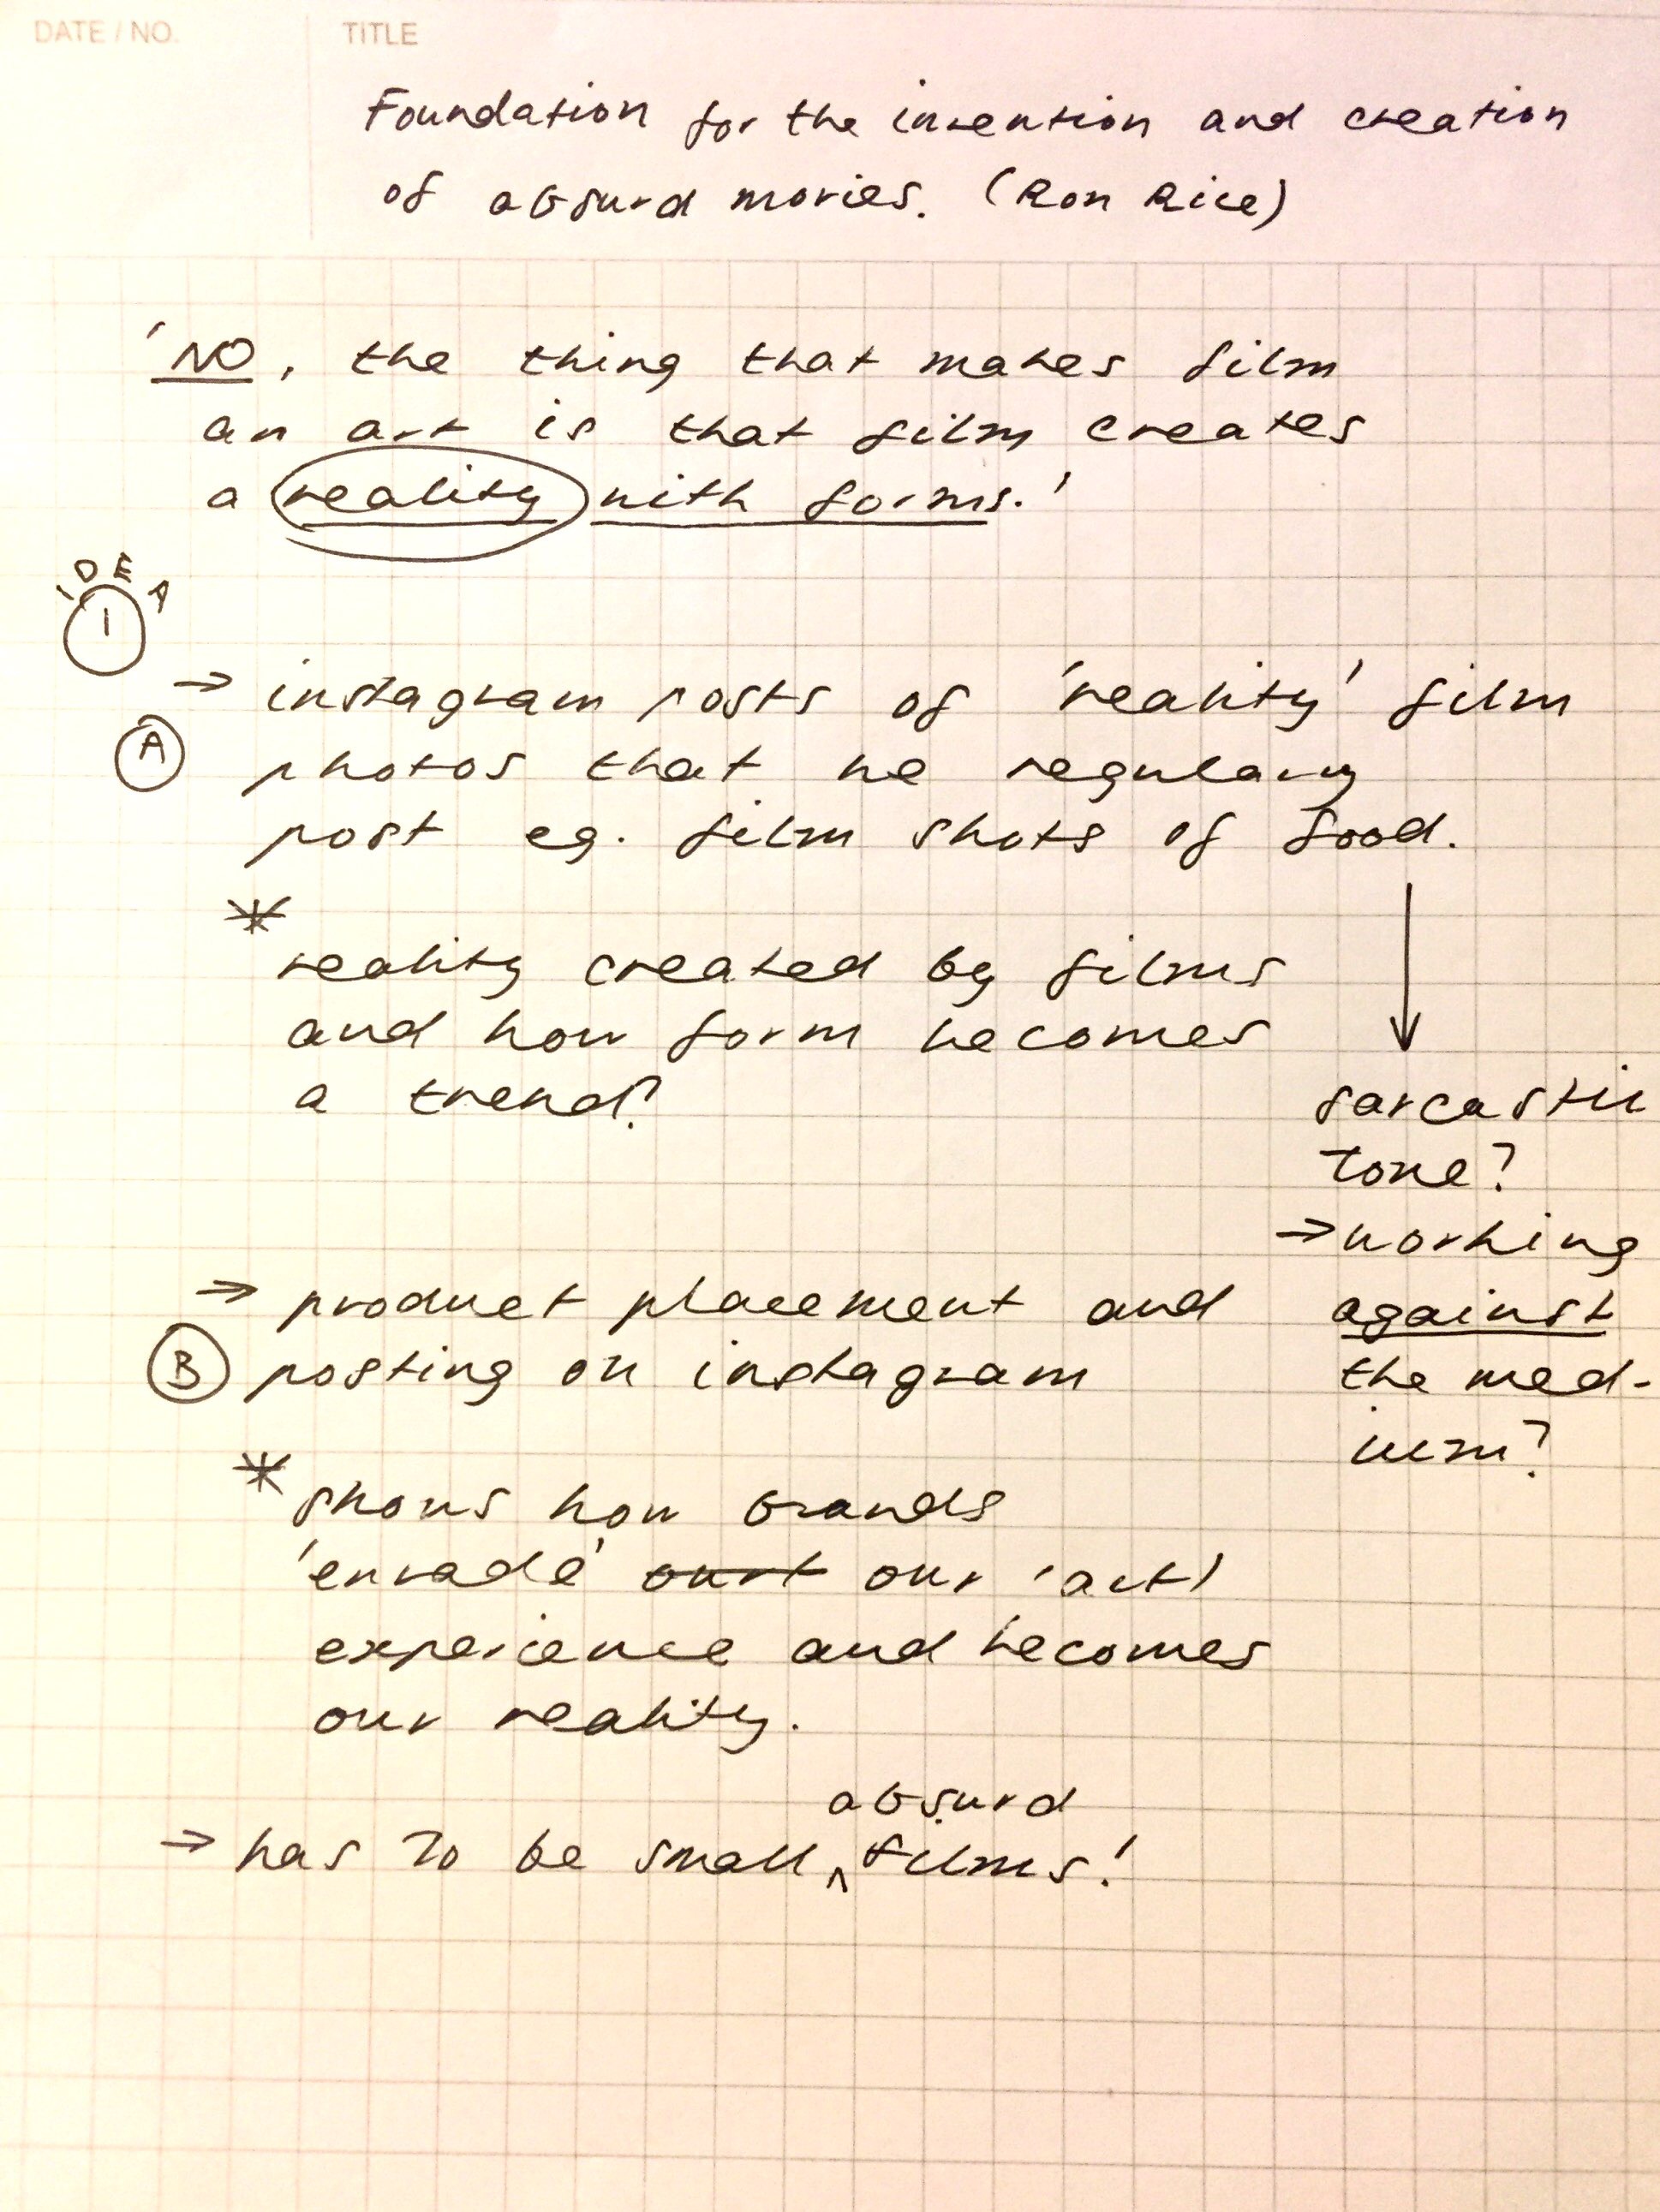 DATE / NO.
TITLE
Foundation for the invention and creation
of absurd movies. (Ron Rice)
'NO, the thing that makes film
an art is that film creates
a reality with forms.'
IDEA
→ instagram posts of 'reality' film
A
photos that we regulary
post eg. film shots of food.
* reality created by films
and how form becomes
a trend?
sarcastic
tone?
→ working
against
the med-
ium?
→ product placement and
B posting on instagram
* shows how brands
'envade' ourt our 'art'
experience and becomes
our reality.
absurd
→ has to be small ^ films!